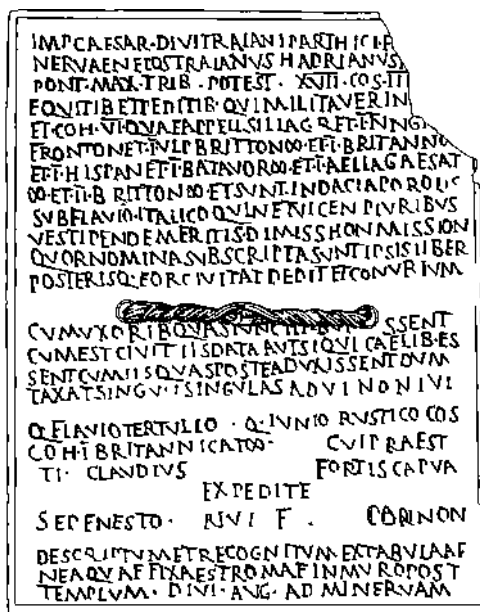 IMP CAESAR·DIVI TRAIANI PARTHICI F
NERVAE NEPOS TRAIANVS HADRIANVS
PONT·MAX·TRIB·POTEST·XVII·COS·III
EQVITIB ET PEDITIB·QVI MILITAVER IN
ET COH·VI QVAE APPELL SILI ET
FRONTON ET I VLP BRITTON ∞ ET I BRITANN
ET I HISPAN ET I BATAVOR ∞ ET I AELIA GAESAT
∞ ET II BRITTON ∞ ET SVNT IN DACIA POROLIS
SVB FLAVIO·ITALICO QVIN ET VICEN PLVRIBVS
VE STIPEND EMERITIS DIMISS HON MISSION
QVOR NOMINA SVBSCRIPTA SVNT IPSIS LIBER
POSTERISQ·EOR CIVITAT DEDIT ET CONVBIVM
CVM VXORIB QVAS SSENT
CVM EST CIVIT IIS DATA AVT SIQVI CAELIB ES
SENT CVM IIS QVAS POSTEA DVXISSENT DVM
TAXAT SINGVLI SINGVLAS A D VI NON IVL
Q FLAVIO TERTVLLO·Q·IVNIO RVSTICO COS
COH·I BRITANNICA ∞ CVI PRAEST
TI·CLAVDIVS FORTIS CAPVA
EX PEDITE
·RIVI F. CORINON
DESCRIPTVM ET RECOGNITVM EX TABVLA AE
NEA QVAE FIXA EST ROMAE IN MVRO POST
TEMPLVM·DIVI·AVG·AD MINERVAM